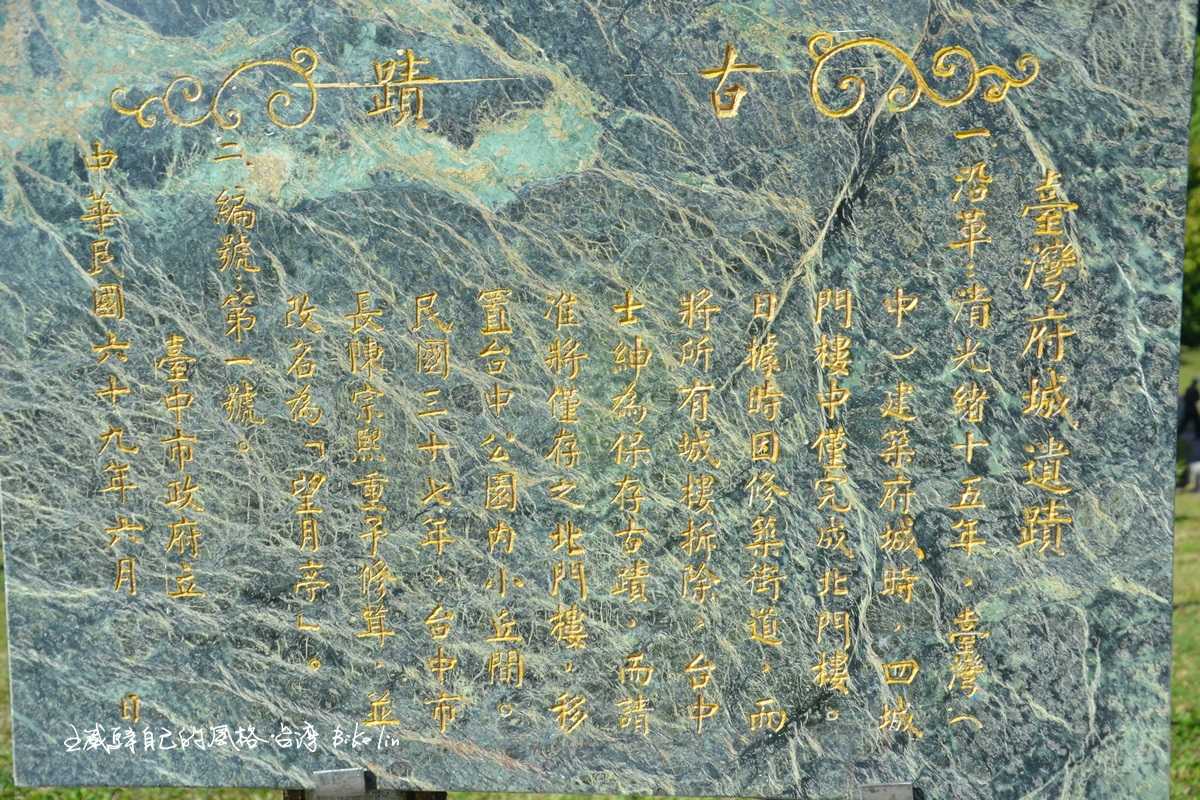 古蹟
臺灣府城遺蹟
一沿革：清光緒十五年，臺灣（
中）建築府城時，四城
門樓中僅完成北門樓。
日據時因修築街道，而
將所有城樓拆除，台中
士紳為保存古蹟，而請
准將僅存之北門樓，移
置台中公園內小丘間。
民國三十七年，台中市
長陳宗熙重予修葺，並
改名為「望月亭」。
二編號：第一號。
臺中市政府立
中華民國六十九年六月 日
自己的風格 台灣 Biko Lin